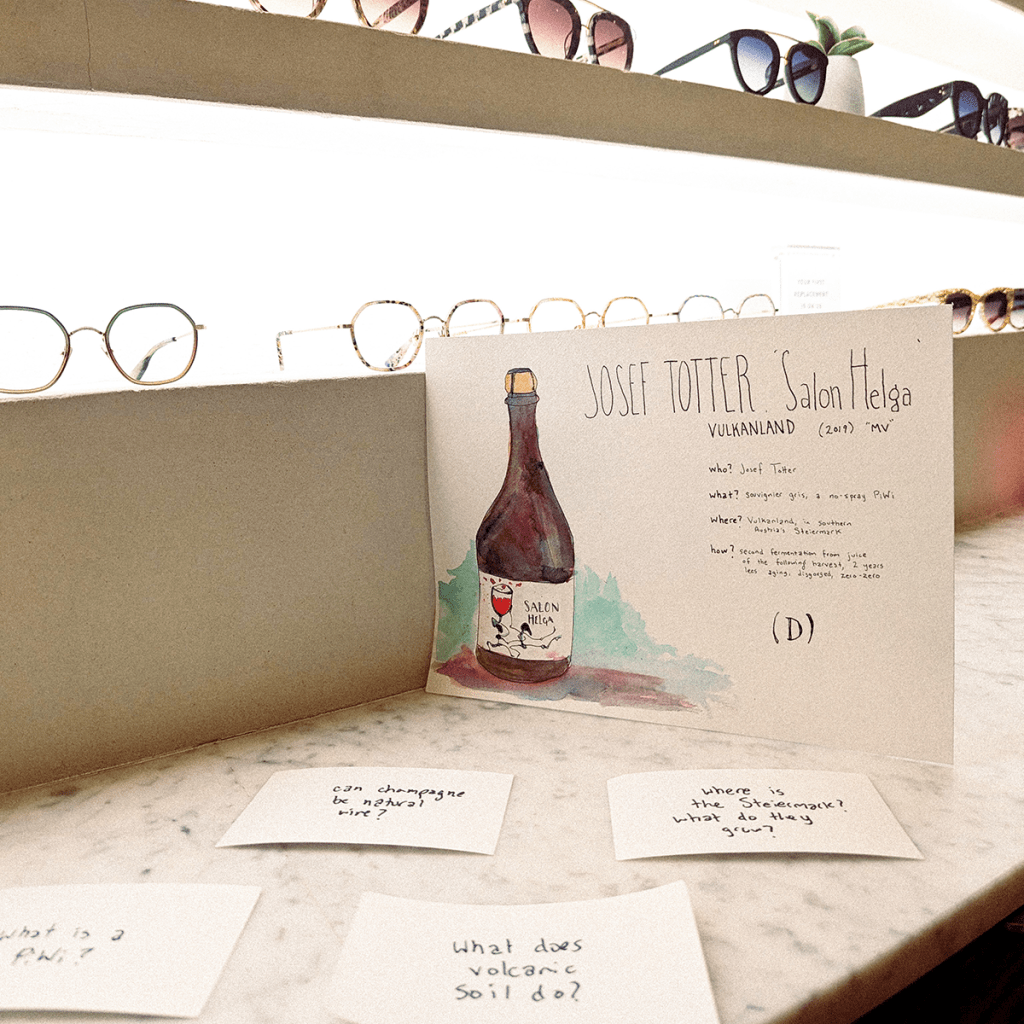 JOSEF TOTTER. Salon Helga
VULKANLAND (2019) "MV"
who? Josef Totter
what? souvignier gris, a no-spray PiWi
where? Vulkanland, in southern
Austria's Steiermark
how? second fermentation from juice
of the following harvest, 2 years
lees aging, disgorged, zero-zero
(D)
SALON
HELGA
can champagne
be natural
wine?
where is
the Steiermark?
what do they
grow?
what is a
PiWi?
What does
volcanic
soil do?